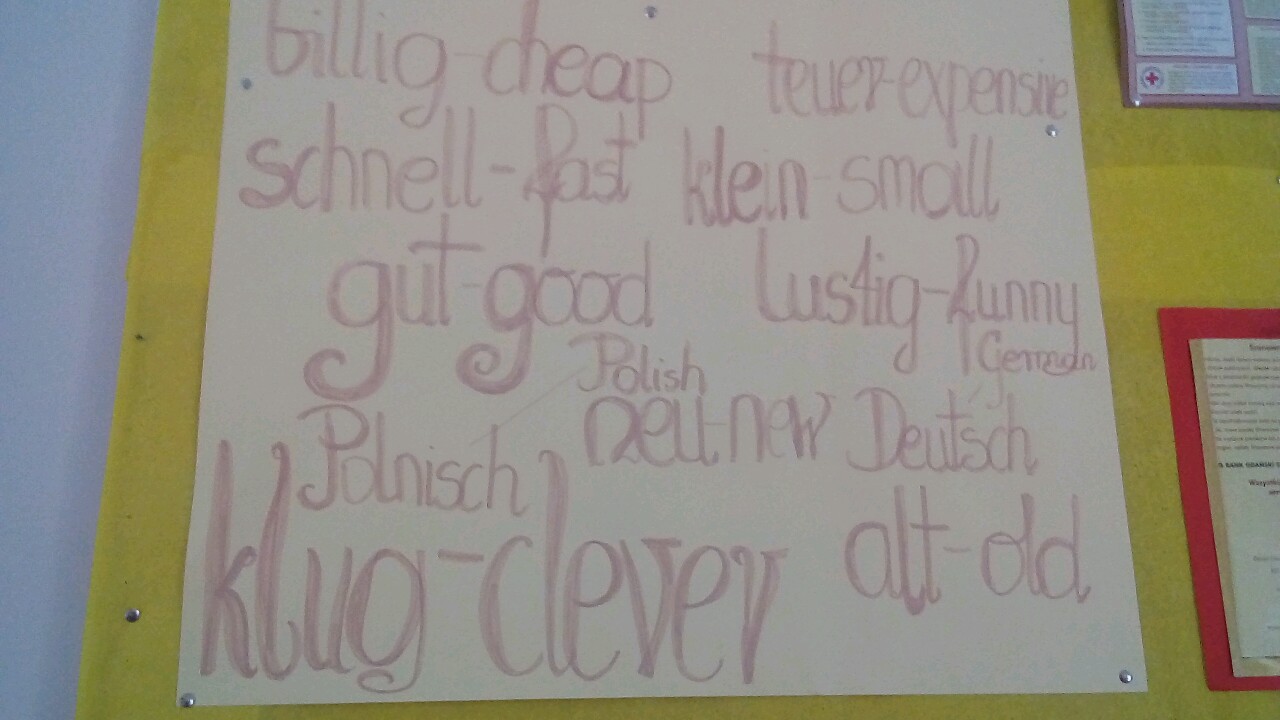 billig-cheap teuer-expensive
schnell-fast klein-small
gut-good lustig-funny
Polish German
Polnisch neu-new Deutsch
klug-clever alt-old